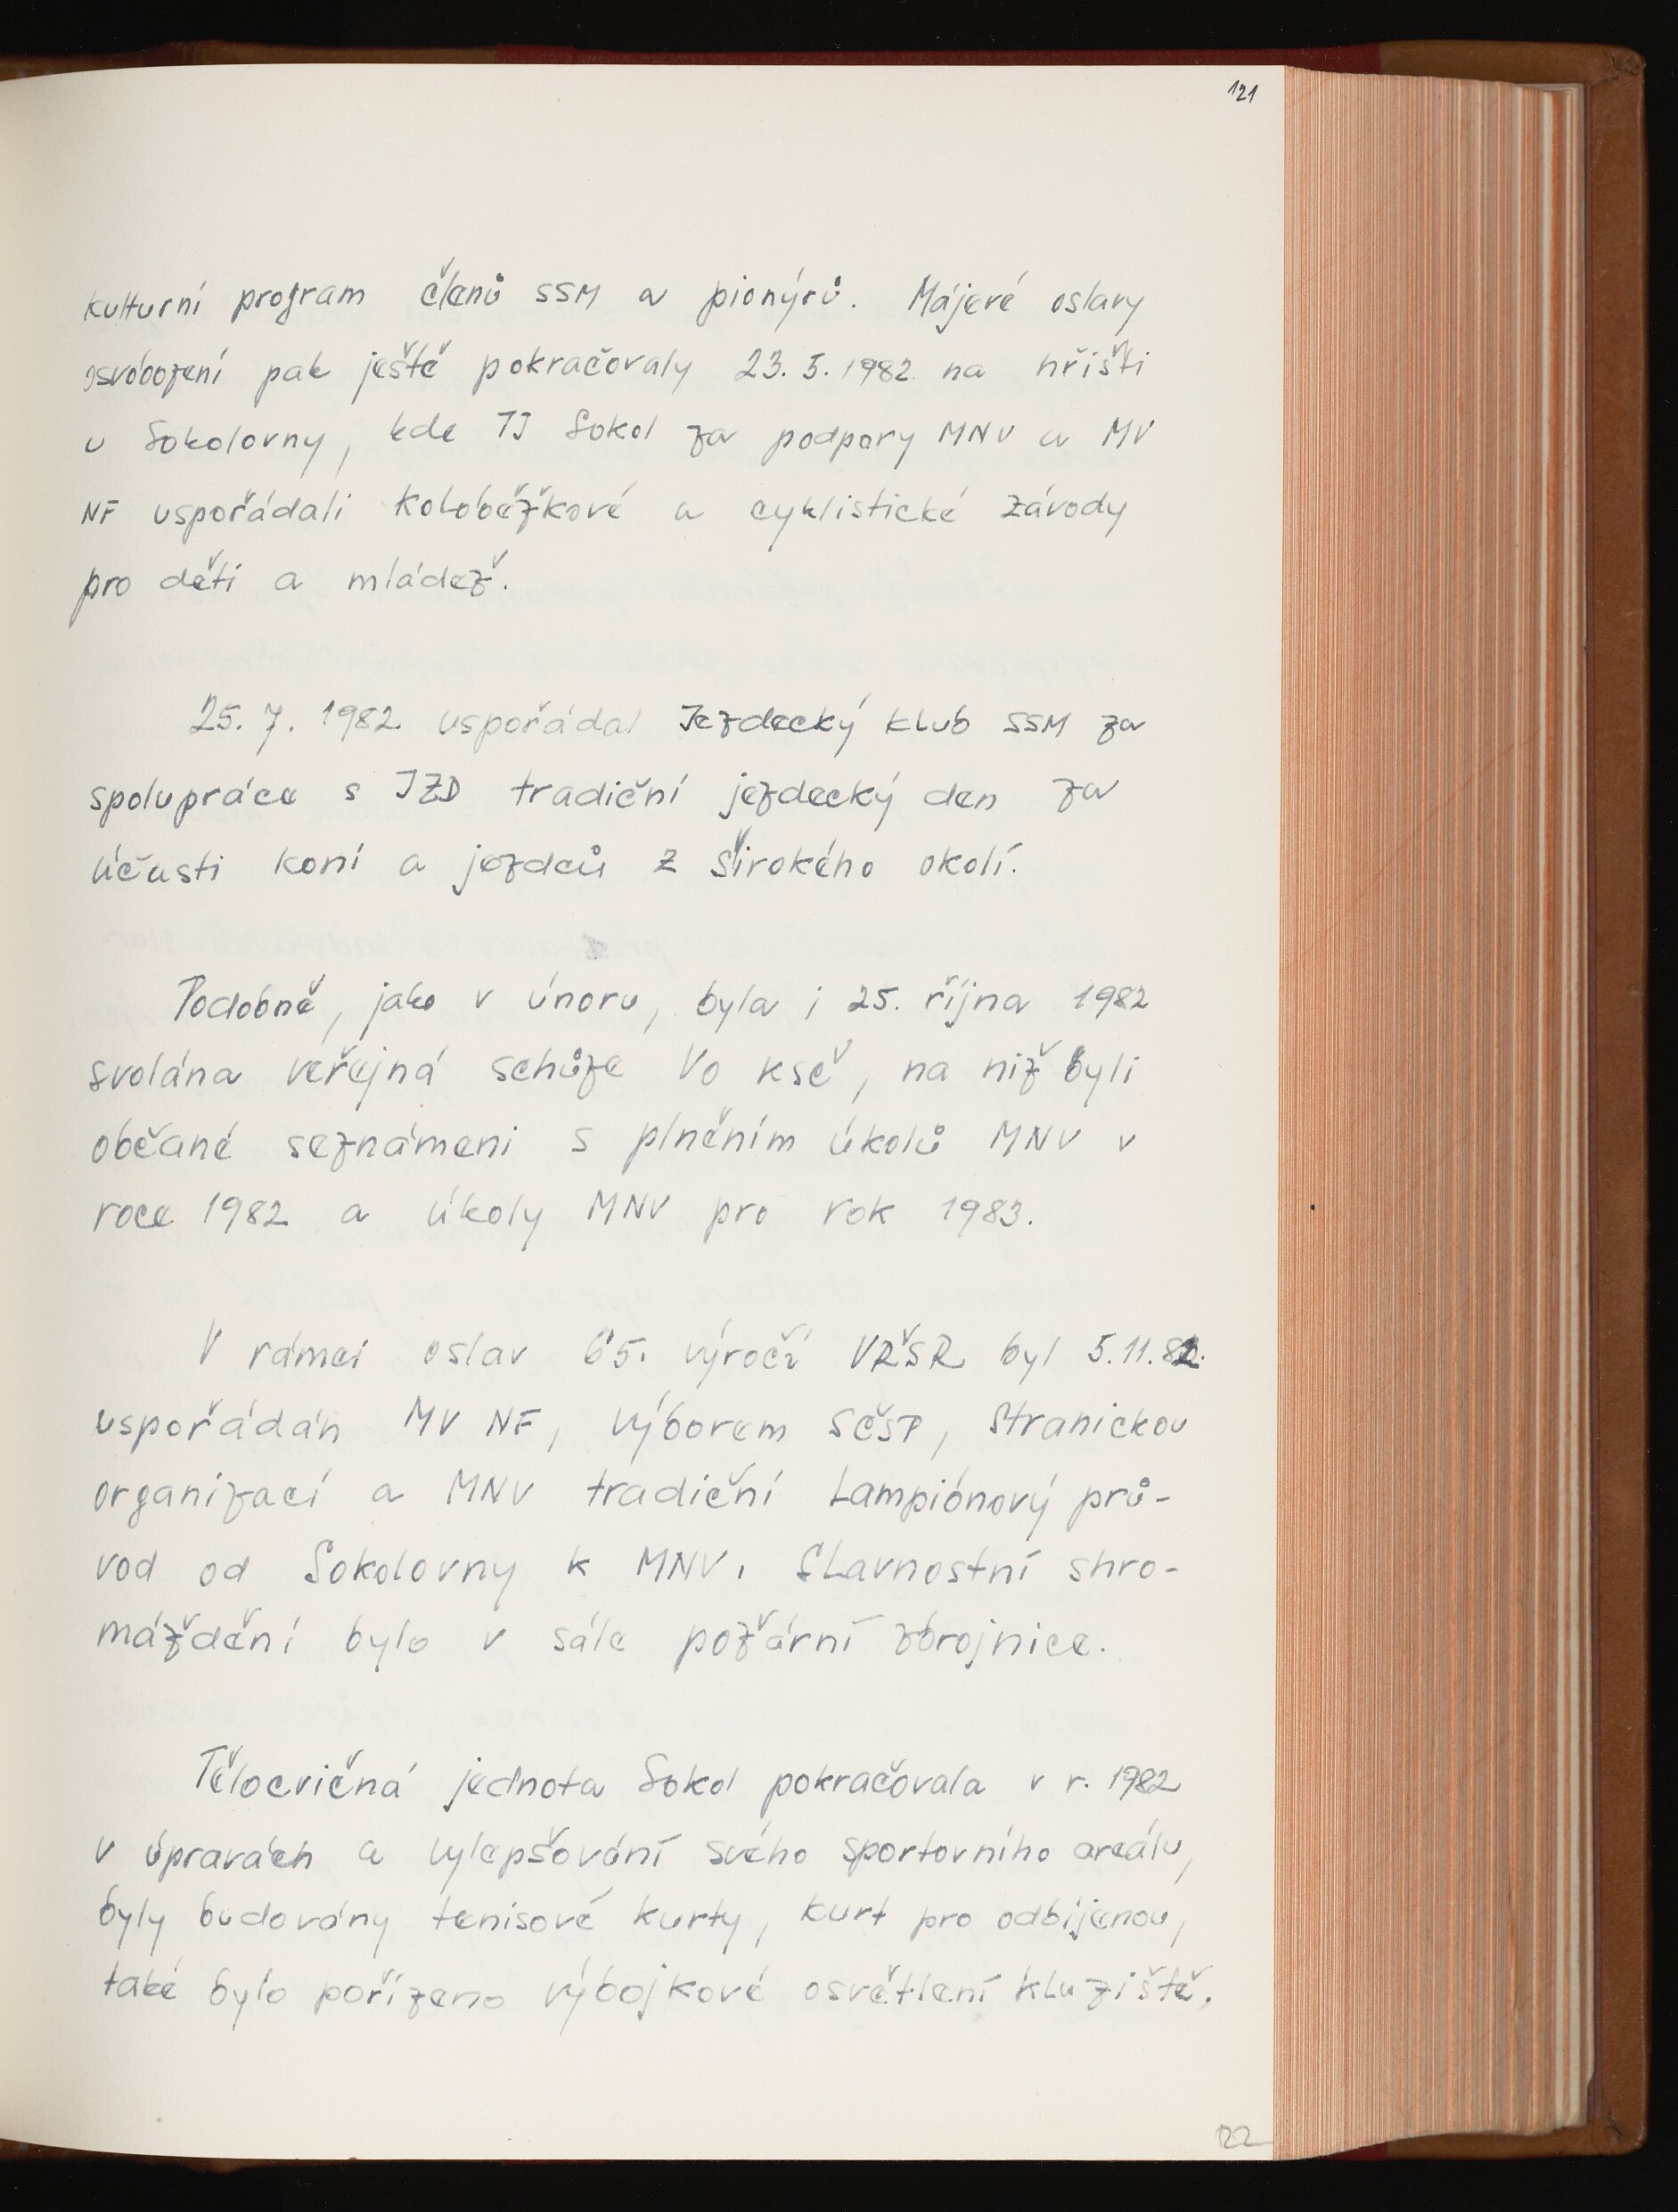 121
kulturní program členů SSM a pionýrů. Májové oslavy
osvobození pak ještě pokračovaly 23. 5. 1982 na hřišti
u Sokolovny, kde TJ Sokol za podpory MNV a MV
NF uspořádali koloběžkové a cyklistické závody
pro děti a mládež.
25. 7. 1982 uspořádal Jezdecký klub SSM za
spolupráce s JZD tradiční jezdecký den za
účasti koní a jezdců z širokého okolí.
Podobně, jako v únoru, byla i 25. října 1982
svolána veřejná schůze VO KSČ, na niž byli
občané seznámeni s plněním úkolů MNV v
roce 1982 a úkoly MNV pro rok 1983.
V rámci oslav 65. výročí VŘSR byl 5. 11. 82.
uspořádán MV NF, výborem SČSP, Stranickou
organizací a MNV tradiční Lampiónový prů-
vod od Sokolovny k MNV. Slavnostní shro-
máždění bylo v sále požární zbrojnice.
Tělocvičná jednota Sokol pokračovala v r. 1982
v úpravách a vylepšování svého sportovního areálu,
byly budovány tenisové kurty, kurt pro odbíjenou,
také bylo pořízeno výbojkové osvětlení kluziště.
122